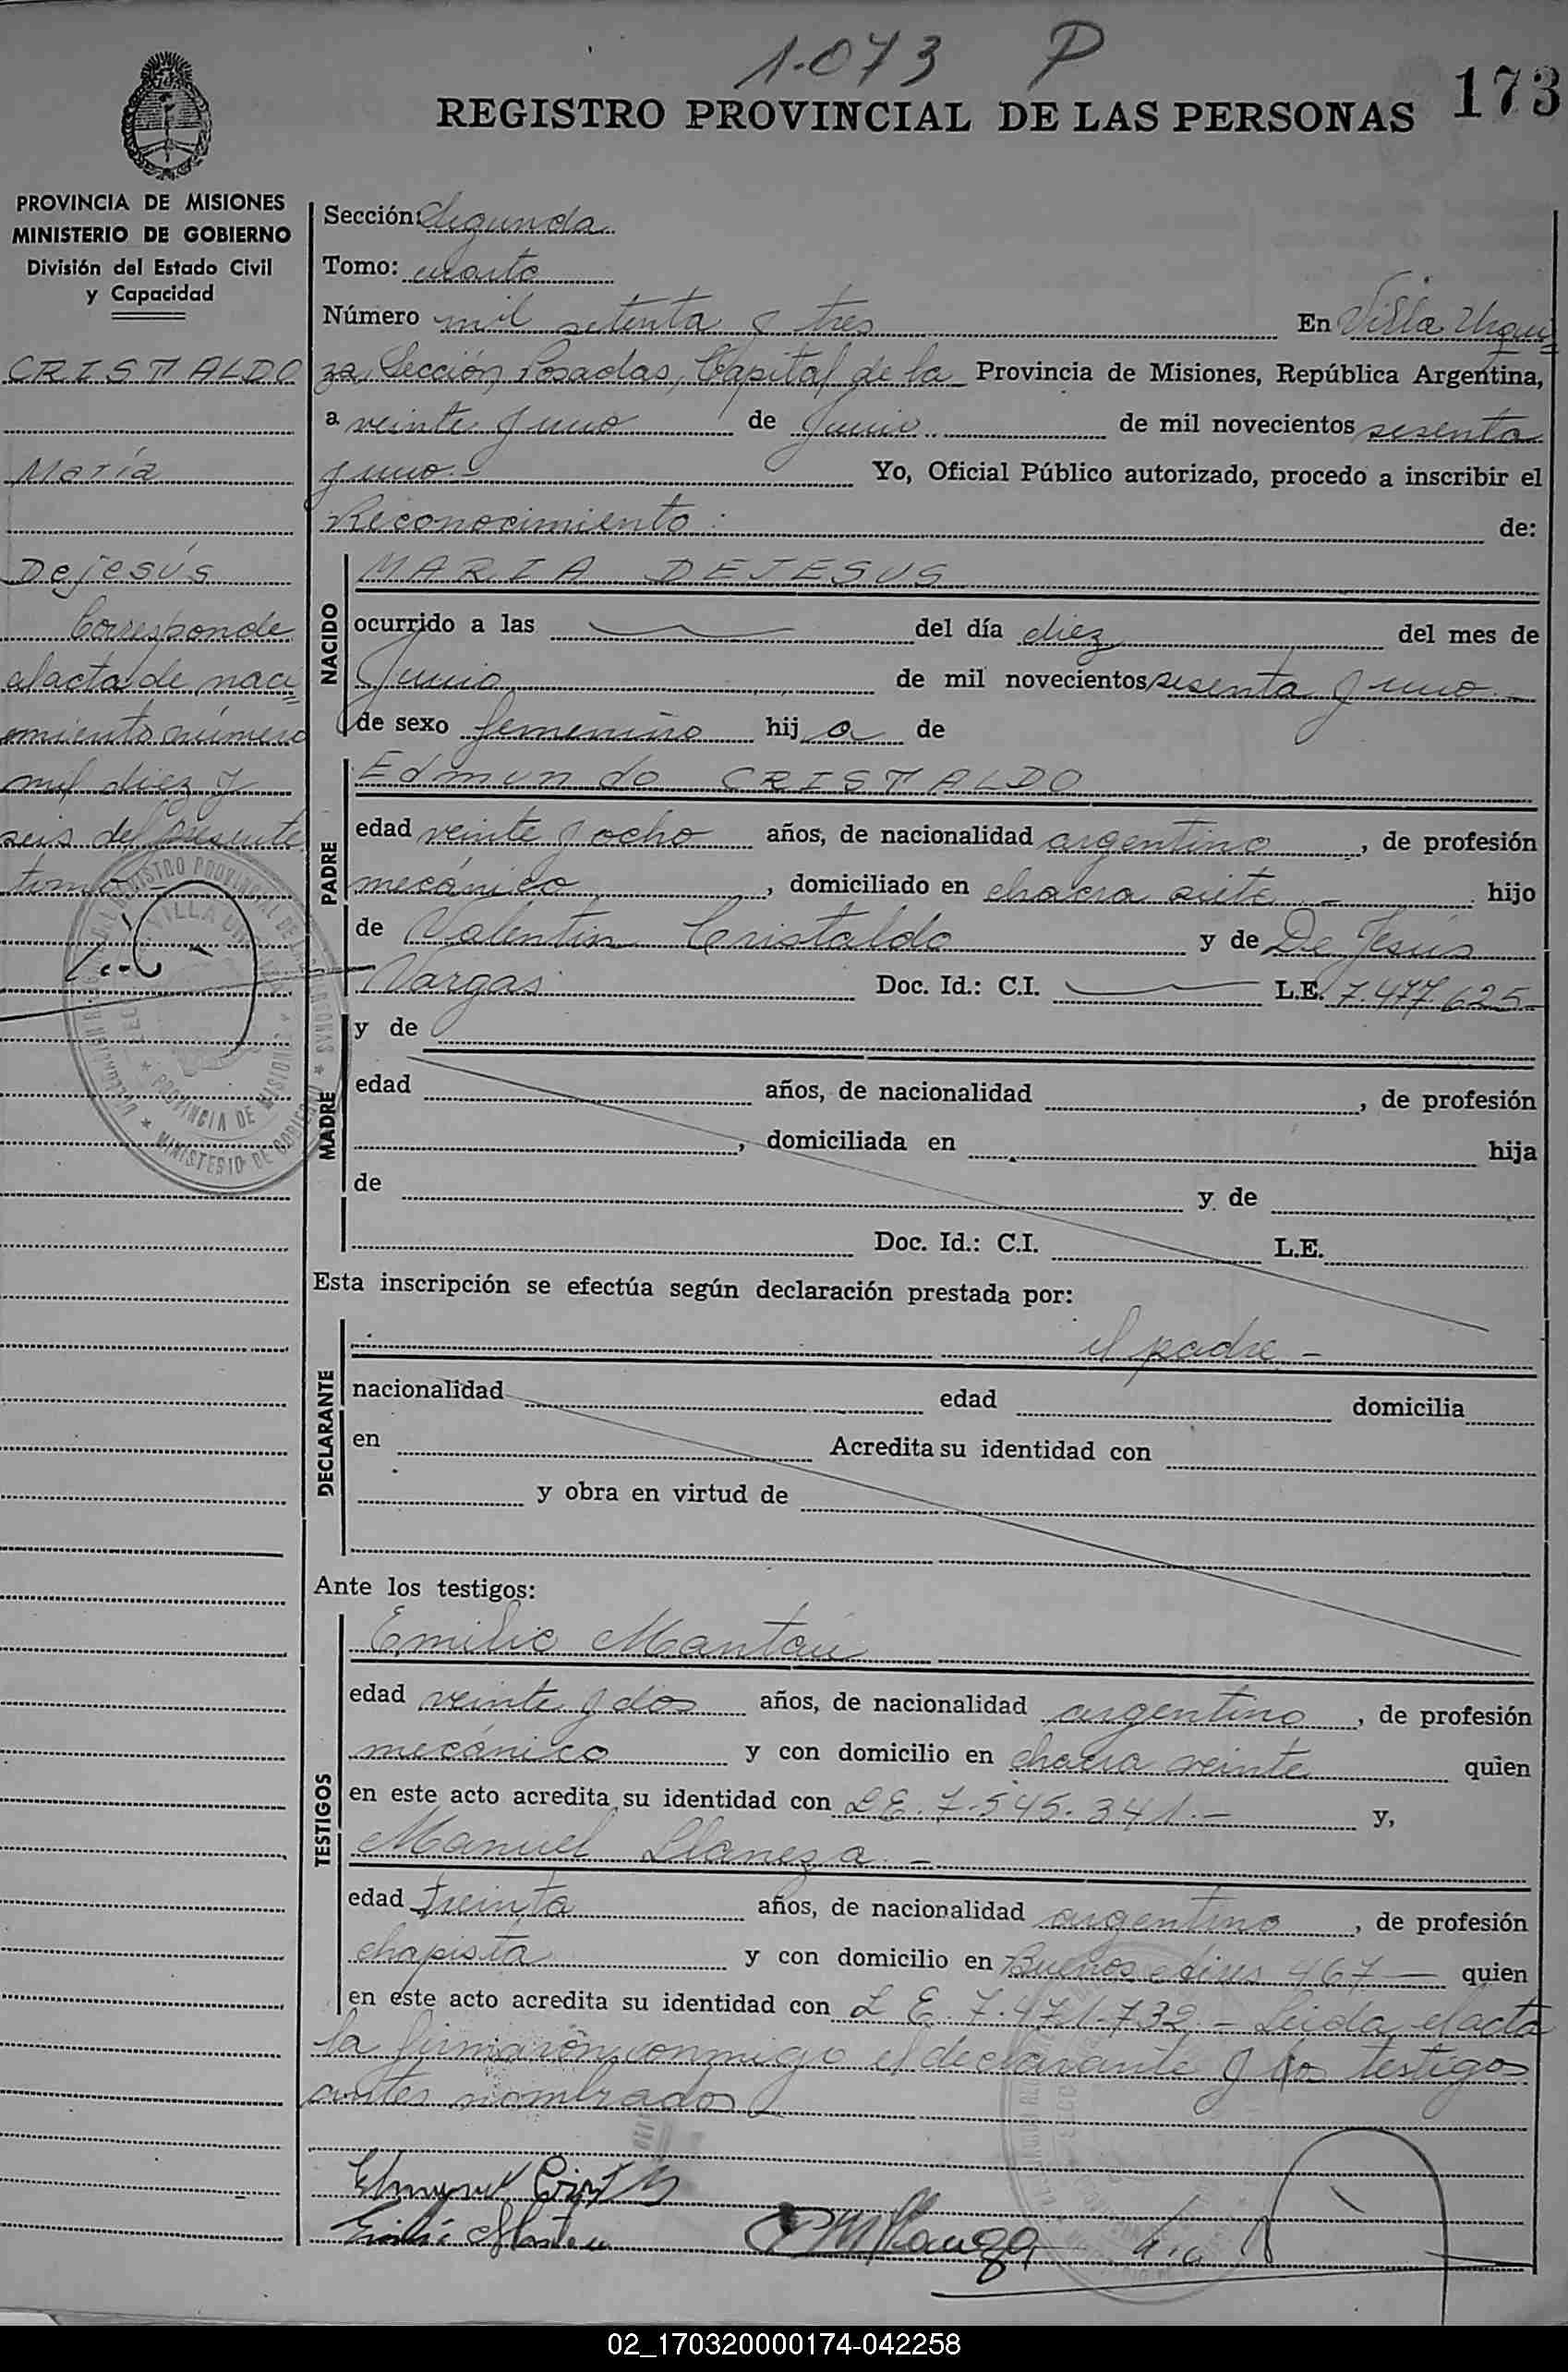 1.073 P
173
REGISTRO PROVINCIAL DE LAS PERSONAS
PROVINCIA DE MISIONES
MINISTERIO DE GOBIERNO
División del Estado Civil
y Capacidad
CRISTALDO
María
Dejesús
Corresponde
al acta de naci=
miento número
mil diez y
seis del presente
tomo
Sección: Segunda
Tomo: cuarto
Número mil setenta y tres En Villa Urqui=
za, Sección Posadas, Capital de la Provincia de Misiones, República Argentina,
a veinte y uno de Junio de mil novecientos sesenta
y uno.- Yo, Oficial Público autorizado, procedo a inscribir el
Reconocimiento: de:
NACIDO
MARIA DEJESUS
ocurrido a las del día diez del mes de
Junio de mil novecientos sesenta y uno.-
de sexo femenino hija de
PADRE
Edmundo CRISTALDO
edad veinte y ocho años, de nacionalidad argentino, de profesión
mecánico, domiciliado en chacra siete - hijo
de Valentin Cristaldo y de De Jesús
Vargas Doc. Id.: C.I. L.E. 7.477.625-
MADRE
y de
edad años, de nacionalidad , de profesión
, domiciliada en hija
de y de
Doc. Id.: C.I. L.E.
Esta inscripción se efectúa según declaración prestada por:
DECLARANTE
el padre.-
nacionalidad edad domicilia
en Acredita su identidad con
y obra en virtud de
Ante los testigos:
TESTIGOS
Emilio Mantau
edad veinte y dos años, de nacionalidad argentino, de profesión
mecánico y con domicilio en chacra veinte quien
en este acto acredita su identidad con L E. 7.545.341.- y,
Manuel Llaneza.-
edad treinta años, de nacionalidad argentino, de profesión
chapista y con domicilio en Buenos Aires 467 - quien
en este acto acredita su identidad con L E. 7.471.732.- Leida el acta
la firmaron conmigo el declarante y los testigos
antes nombrados
02_170320000174-042258